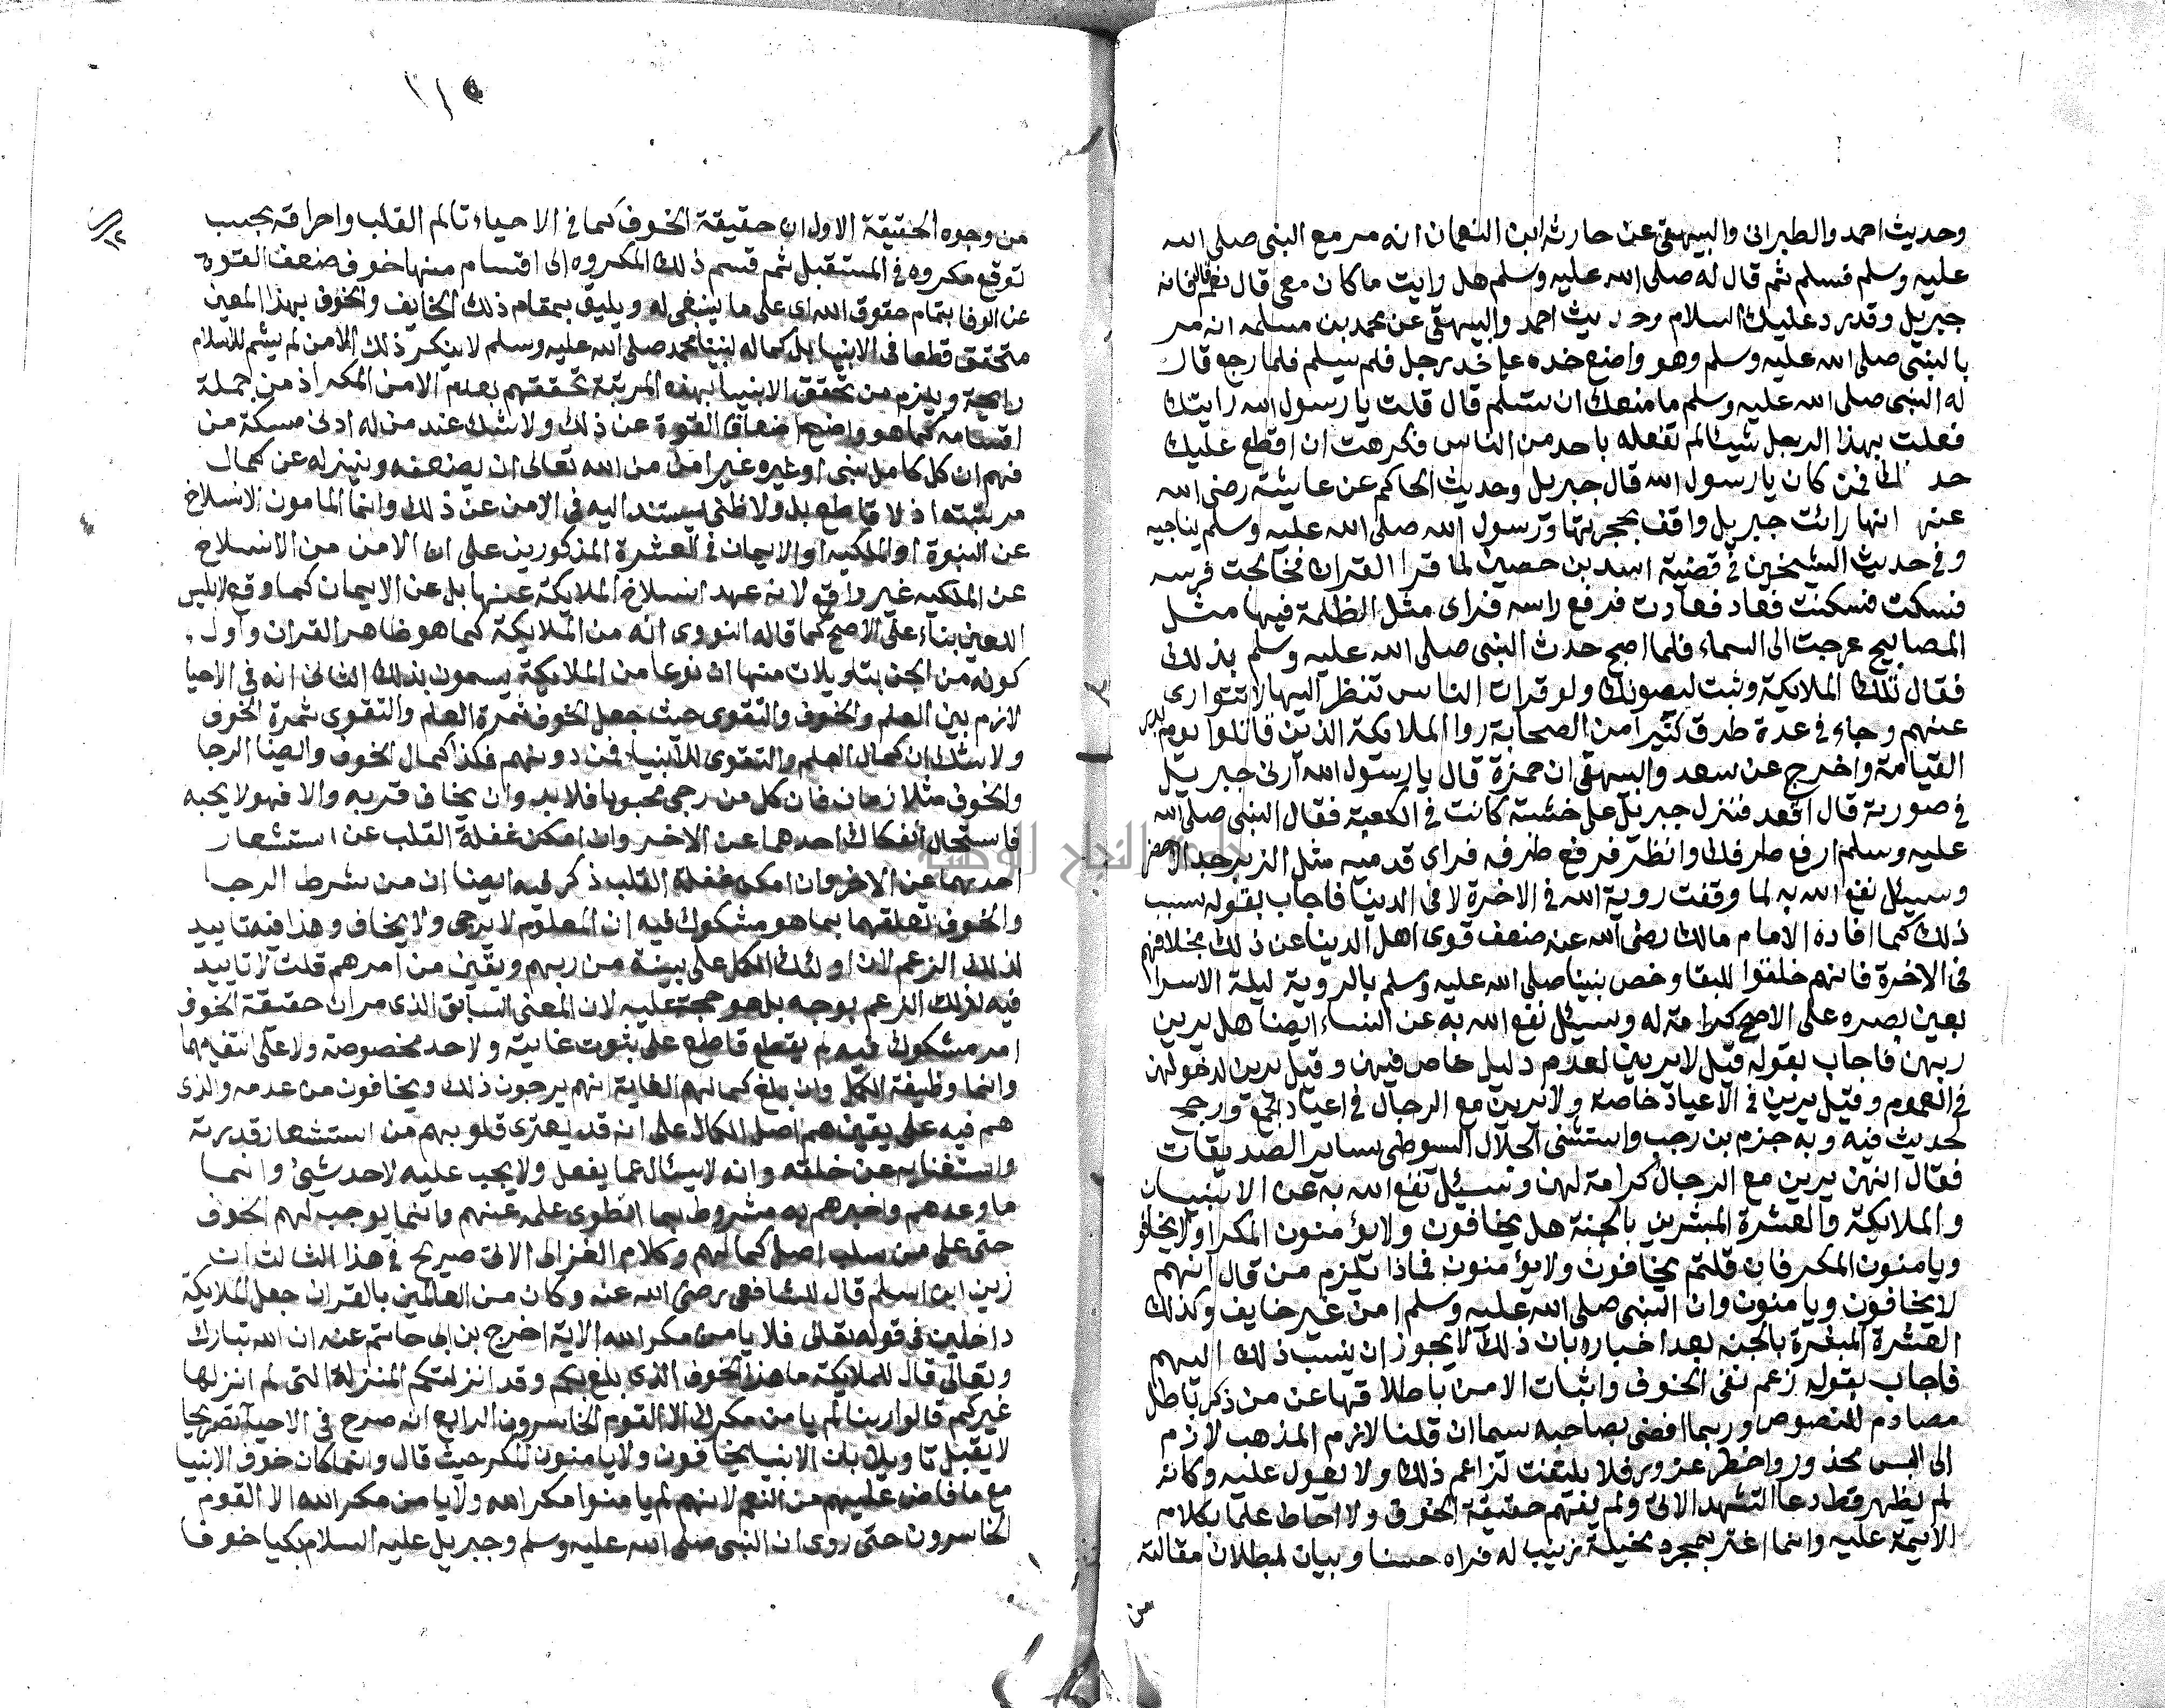 وحديث احمد والطبراني والبيهقي عن حارثه ابن النعمان انه مر مع النبي صلى الله
عليه وسلم فسلم ثم قال له صلى الله عليه وسلم هل رايت ما كان معى قال نعم قال فانه
جبريل وقد رد عليك السلام وحديث احمد والبيهقي عن محمد بن مسلمه انه مر
بالنبي صلى الله عليه وسلم وهو واضع خده على خد رجل فلم يسلم فلما رجع قال
له النبي صلى الله عليه وسلم ما منعك ان تسلم قال قلت يا رسول الله رايتك
فعلت بهذا الرجل شيئا لم تفعله باحد من الناس فكرهت ان اقطع عليك
حد فمن كان يا رسول الله قال جبريل وحديث الحاكم عن عايشة رضي الله
عنه انها رائت جبريل واقف بحجرتها ورسول الله صلى الله عليه وسلم يناجيه
وفي حديث الشيخين في قضية اسيد بن حصين لما قرا القران فجالت فرسه
فسكت فسكنت فعاد فعادت فرفع راسه فراى مثل الظلمة فيها مثل
المصابيح عرجت الى السماء فلما اصبح حدث النبي صلى الله عليه وسلم بذلك
فقال تلك الملايكة وثبت لصوتك ولو قرات الناس تنظر اليها لا تتوارى
عنهم وجاء في عدة طرق كثيرا من الصحابة روا الملايكة الذين قاتلوا يوم بدر
القيامة واخرج عن سعد والبيهقي ان حمزة قال يا رسول الله ارني جبريل
في صورته قال اقعد فنزل جبريل على خشبة كانت في الكعبة فقال النبي صلى الله
عليه وسلم ارفع طرفك وانظر فرفع طرفه فراى قدميه مثل الزبرجد الاخضر
وسييل نفع الله به لما وقفت روية الله في الاخرة لا في الدنيا فاجاب بقوله سبب
ذلك كما افاده الامام مالك رضي الله عنه ضعف قوى اهل الدنيا عن ذلك بخلافهم
في الاخرة فانهم خلقوا للبقا وخص نبينا صلى الله عليه وسلم بالروية ليلة الاسرا
بعين بصره على الاصح كرامة له وسييل نفع الله به عن النساء ايضا هل يرين
ربهن فاجاب بقوله قيل لا يرين لعدم دليل خاص فيهن وقيل يرين لدخولهن
في العموم وقيل يرين في الاعياد خاصة ولا يرين مع الرجال في اعياد الجمع ورجح
لحديث فيه وبه جزم بن رجب واستثنى الجلال السيوطي ساير الصديقات
فقال انهن يرين مع الرجال كرامة لهن وسييل نفع الله به عن الانبياء
والملايكة والعشرة المبشرين بالجنة هل يخافون ولا يؤمنون المكر او لا يخافو
ويامنون المكر فان قلتم يخافون ولا يؤمنون فماذا يلزم من قال انهم
لا يخافون ويامنون وان النبي صلى الله عليه وسلم امن غير خايف وكذلك
العشرة المبشرة بالجنه بعد اخباره بان ذلك لا يجوز ان ينسب ذلك اليهم
فاجاب بقوله زعم نفي الخوف واثبات الامن باطلاقها عن من ذكر باطل
مصادم للنصوص وربما افضى بصاحبه سيما ان قلنا لازم المذهب لازم
الى محذور واخطر عزور فلا يلتفت لزاعم ذلك ولا يعول عليه وكانه
لم يظهر قط دعا التشهد الاتي ولم يفهم حقيقة الخوف ولا احاط علما بكلام
الايمة عليه وانما اغتر بمجرد مخيلة زينت له فراه حسنا وبيان لبطلان مقالته
من
١١٥
من وجوه الحقيقة الاول ان حقيقة الخوف كما في الاحياء تالم القلب واحراقه بسبب
توقع مكروه في المستقبل ثم قسم ذلك المكروه الى اقسام منها خوف ضعف القوة
عن الوفا بتمام حقوق الله اي على ما ينبغي له ويليق بمقام ذلك الخايف والخوف بهذا المعنى
متحقق قطعا في الانبيا بل كماله لنبينا محمد صلى الله عليه وسلم لا ينكر ذلك الا من لم يشم للاسلام
رايحة ويلزم من تحقق الانبيا بهذه المرتبة تحققهم بعدم الامن المكر اذ من جملة
اقسامه كما هو واضح اضعاف القوة عن ذلك ولا شك عند من له ادنى مسكة من
فهم ان كل كامل نبي او غيره غير امن من الله تعالى ان يضعفه وينزله عن كمال
مرتبته اذ لا قاطع بل ولا ظني يستند اليه في الامن عن ذلك وانما المامون الانسلاخ
عن النبوة او الملكيه او الايمان في العشرة المذكورين على ان الامن من الانسلاخ
عن الملكيه غير واقع لانه عهد انسلاخ الملايكة عنها بل عن الايمان كما وقع لابليس
اللعين بناء على الاصح كما قاله النووى انه من الملايكة كما هو ظاهر القران واول
كونه من الجن بتاويلات منها ان نوعا من الملايكة يسمون بذلك الثاني انه في الاحيا
لازم بين العلم والخوف والتقوى حيث جعل الخوف ثمرة العلم والتقوى ثمرة الخوف
ولا شك ان كمال العلم والتقوى للانبياء فمن دونهم فكذا كمال الخوف وايضا الرجا
والخوف متلازمان فان كل من رجى محبوبا فلا بد وان يخاف قربه والا فهو لا يحبه
فاستحال انفكاك احدهما عن الاخر وان امكن غفلة القلب عن استشعار
احديهما عن الاخر وان امكن غفلة القلب ذكر فيه ايضا ان من شرط الرجا
والخوف تعلقهما بما هو مشكوك فيه ان المعلوم لا يرجى ولا يخاف وهذا فيه تاييد
لذلك الزعم لان اولئك الكمل على بينة من ربهم ويقين من امرهم قلت لا تاييد
فيه لذلك الزعم بوجه بل هو حجة عليه لان المعنى السابق الذي مر ان حقيقة الخوف
امر مشكوك فيه لم يقطع قاطع على ثبوت غاية ولا حد مخصوصة ولا على انتفايهما
وانما وظيفة الكمل وان بلغ كمالهم الغاية انهم يرجون ذلك ويخافون من عدمه والذى
هم فيه على يقين هم اصل الكمال على انه قد يعترى قلوبهم من استشعار قدرته
واستغنايه عن خلقه وانه لا يسئال عما يفعل ولا يجب عليه لاحد شيئ وانما
ما وعدهم واخبرهم به مشروط بما انطوى علمه عنهم وانما يوجب لهم الخوف
حتى على من سلب اصل كمالهم وكلام الغزالي الاتي صريح في هذا الثالث ان
زين ابن اسلم قال للشافعى رضى الله عنه وكان من العالمين بالقران جعل الملايكة
داخلين في قوله تعالى فلا يامن مكر الله الاية اخرج بن ابي حاتم عنه ان الله تبارك
وتعالى قال للملايكة ما هذا الخوف الذى بلغ بكم وقد انزلتكم المنزلة التي لم انزلها
غيركم قالوا ربنا لم يامن مكرك الا القوم الخاسرون الرابع انه صرح في الاحيآ تصريحا
لا يقبل تاويلا بان الانبيا يخافون ولا يامنون المكر حيث قال وانما كان خوف الانبيا
مع ما فاض عليهم من النعم لانهم لم يامنوا مكر الله ولا يامن مكر الله الا القوم
الخاسرون حتى روى ان النبي صلى الله عليه وسلم وجبريل عليه السلام بكيا خوفا
جامعة النجاح الوطنية